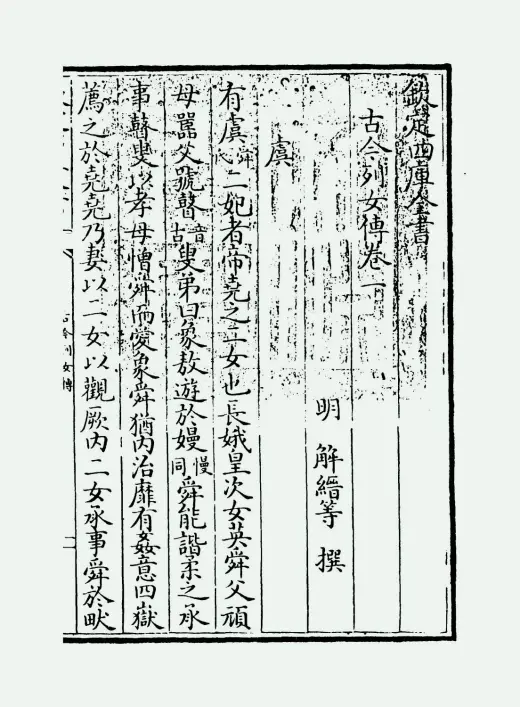 欽定四庫全書
古今列女傳卷一
明 解縉等 撰
虞
有虞舜氏二妃者帝堯之二女也長娥皇次女英舜父頑
母嚚父號瞽音古叟弟曰象敖遊於嫚慢同舜能諧柔之承
事瞽叟以孝母憎舜而愛象舜猶內治靡有姦意四嶽
薦之於堯堯乃妻以二女以觀厥內二女承事舜於畎
古今列女傳